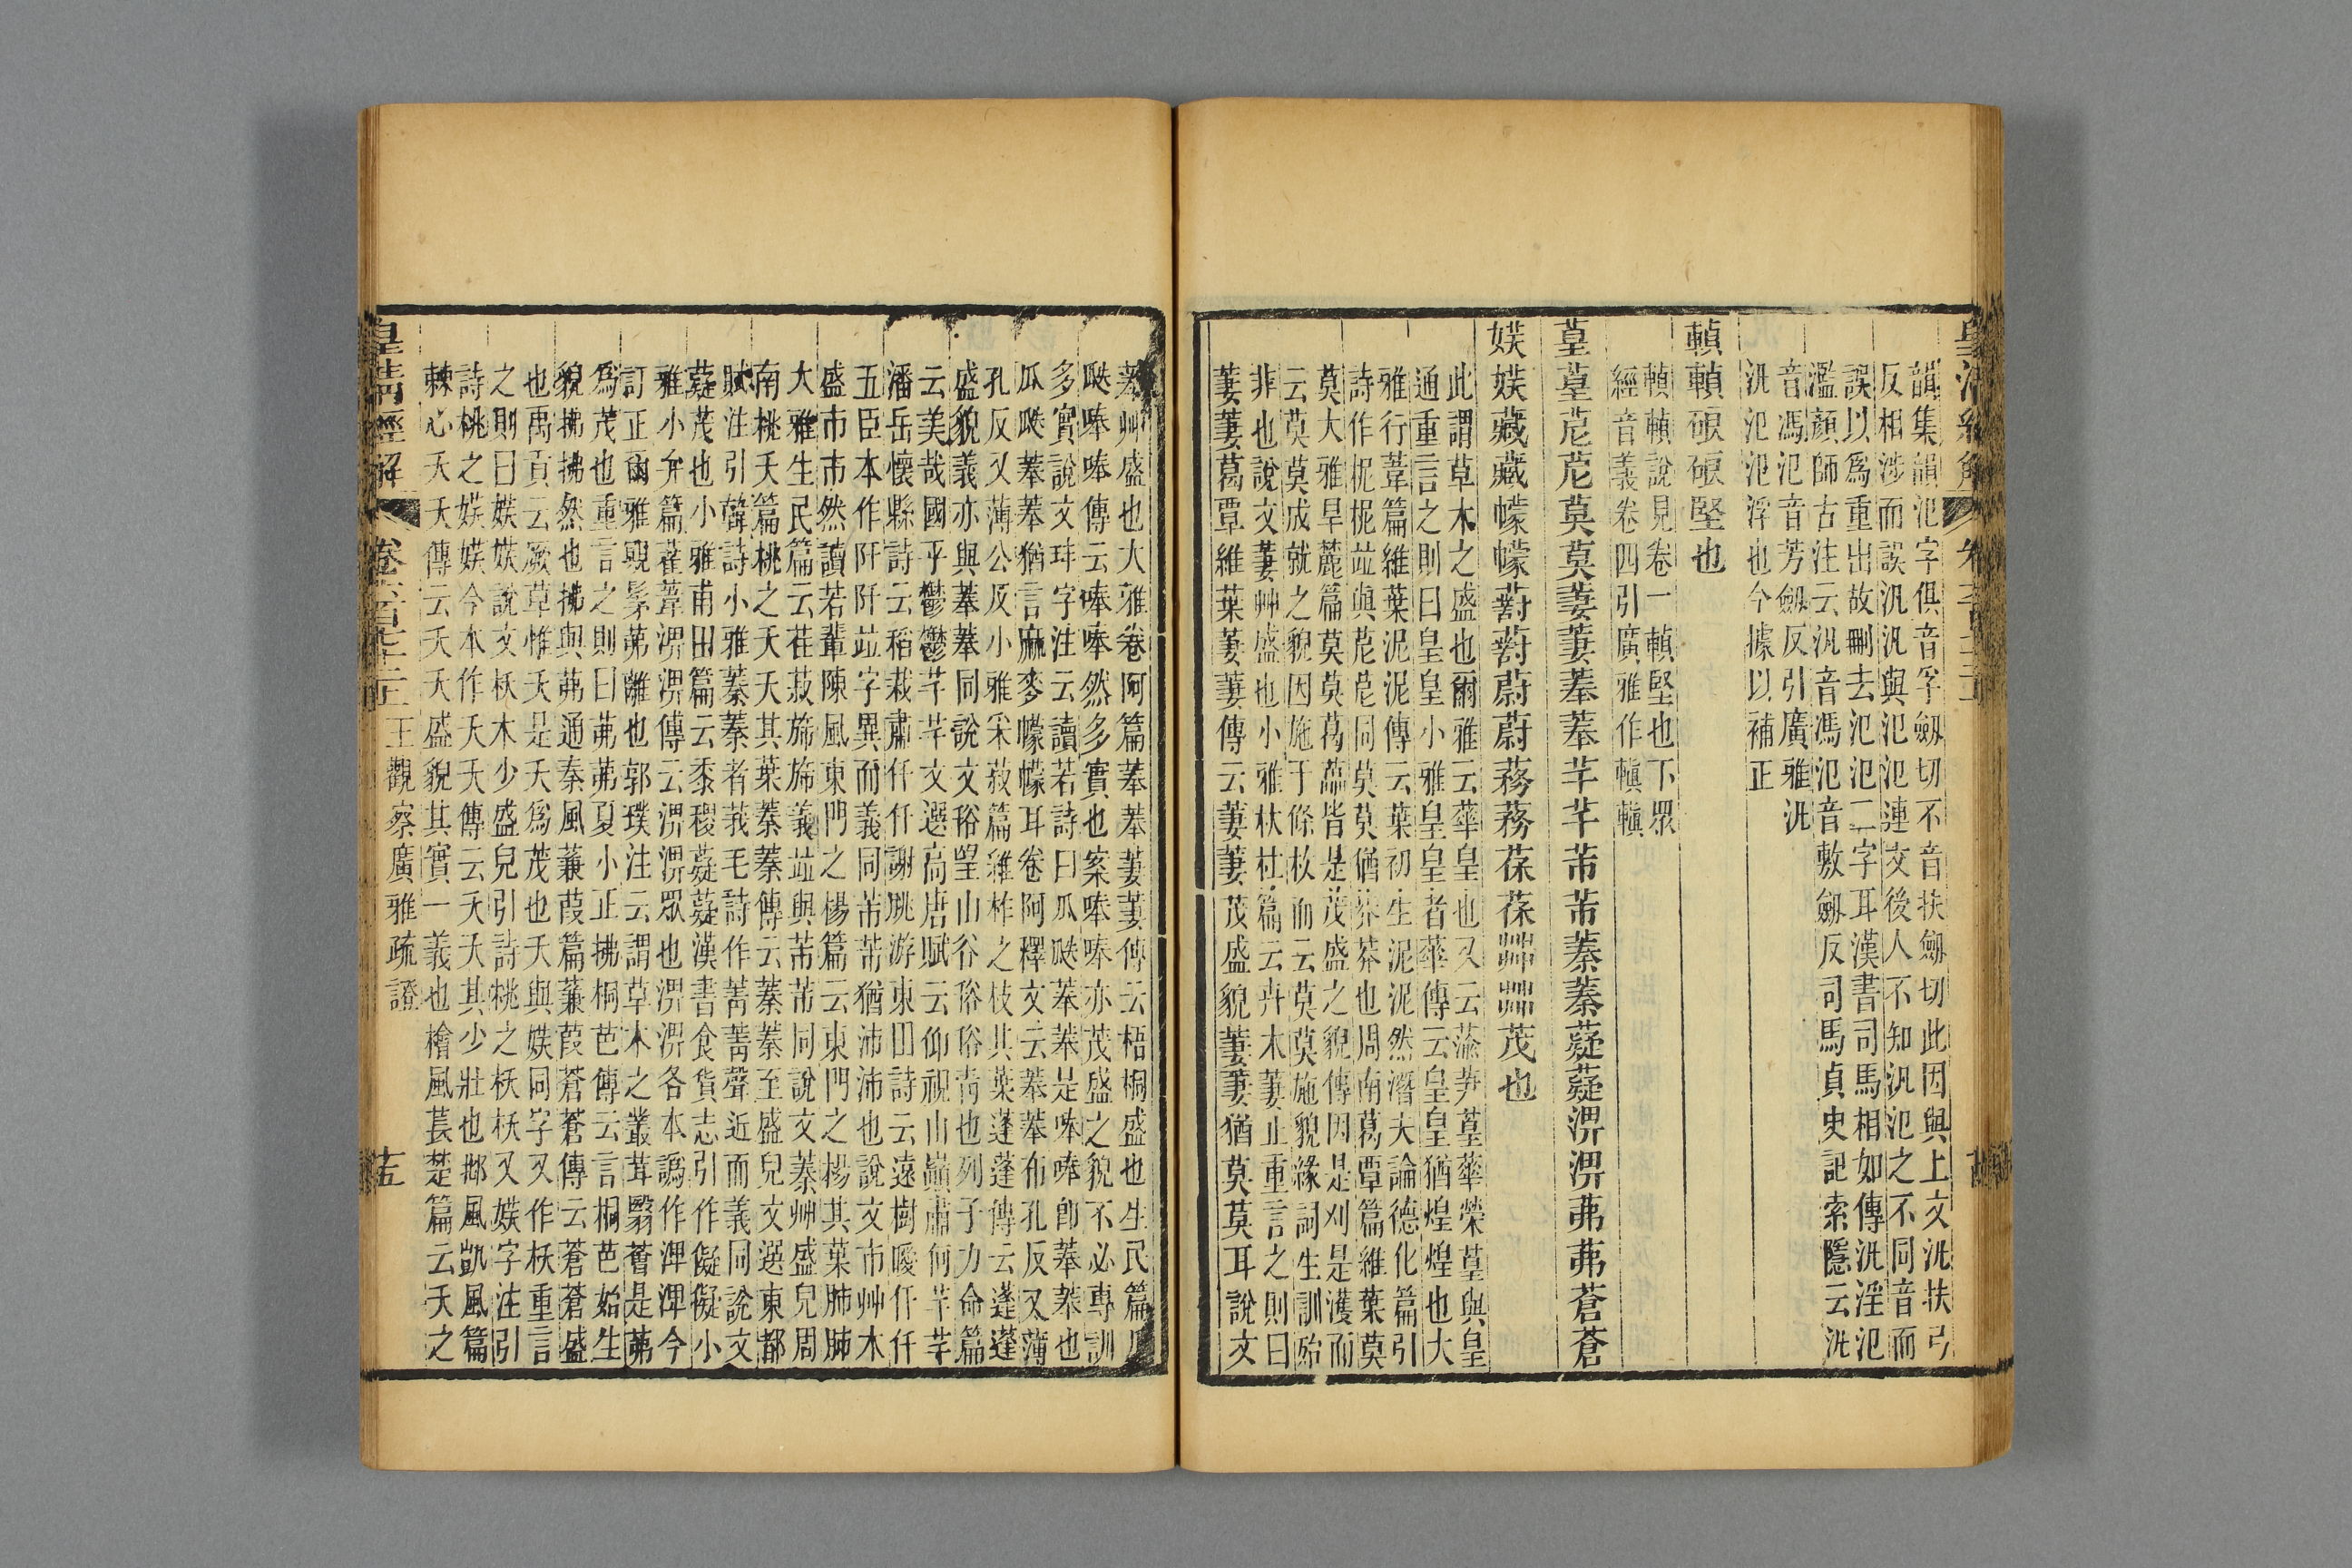 皇清經解
韻集韻氾字俱音孚劒切不音扶劒切此因與上文渢扶弓
反相涉而誤汎汎與氾氾連文後人不知汎氾之不同音而
誤以爲重出故刪去氾氾二字耳漢書司馬相如傳渢淫氾
濫顏師古注云汎音馮氾音敷劒反司馬貞史記索隱云渢
音馮氾音芳劒反引廣雅渢
渢氾氾浮也今據以補正
䡩䡩硍硍堅也
䡩䡩說見卷一䡩堅也下眾
經音義卷四引廣雅作轃轃
葟葟苨苨莫莫萋萋菶菶芊芊芾芾蓁蓁薿薿淠淠茀茀蒼蒼
媄媄藏藏幪幪薱薱蔚蔚蓩蓩葆葆茻茻茂也
此謂草木之盛也爾雅云華皇也又云蕍芛葟華榮葟與皇
通重言之則曰皇皇小雅皇皇者華傳云皇皇猶煌煌也大
雅行葦篇維葉泥泥傳云葉初生泥泥然潛夫論德化篇引
詩作柅柅竝與苨苨同莫莫猶莽莽也周南葛覃篇維葉莫
莫大雅旱麓篇莫莫葛藟皆是茂盛之貌傳因是刈是濩而
云莫莫成就之貌因施于條枚而云莫莫施貌緣詞生訓殆
非也說文萋艸盛也小雅杕杜篇云卉木萋止重言之則曰
萋萋葛覃維葉萋萋傳云萋萋茂盛貌萋萋猶莫莫耳說文
菶艸盛也大雅卷阿篇菶菶萋萋傳云梧桐盛也生民篇瓜
瓞唪唪傳云唪唪然多實也案唪唪亦茂盛之貌不必專訓
多實說文玤字注云讀若詩曰瓜瓞菶菶是唪唪卽菶菶也
瓜瓞菶菶猶言麻麥幪幪耳卷阿釋文云菶菶布孔反又薄
孔反又薄公反小雅采菽篇維柞之枝其葉蓬蓬傳云蓬蓬
盛貌義亦與菶菶同說文俗㟿山谷俗俗靑也列子力命篇
云美哉國乎鬱鬱芊芊文選高唐賦云仰視山巔肅何芊芊
潘岳懷縣詩云稻栽肅仟仟謝朓游東田詩云遠樹曖仟仟
五臣本作阡阡竝字異而義同芾芾猶沛沛也說文巿艸木
盛巿巿然讀若輩陳風東門之楊篇云東門之楊其葉肺肺
大雅生民篇云荏菽斾斾義竝與芾芾同說文蓁艸盛兒周
南桃夭篇桃之夭夭其葉蓁蓁傳云蓁蓁至盛兒文選東都
賦注引韓詩小雅蓁蓁者莪毛詩作菁菁聲近而義同說文
薿茂也小雅甫田篇云黍稷薿薿漢書食貨志引作儗儗小
雅小弁篇萑葦淠淠傳云淠淠眾也淠淠各本譌作渒渒今
訂正爾雅覭髳茀離也郭璞注云謂草木之叢茸翳薈是茀
爲茂也重言之則曰茀茀夏小正拂桐芭傳云言桐芭始生
貌拂拂然也拂與茀通秦風蒹葭篇蒹葭蒼蒼傳云蒼蒼盛
也禹貢云厥草惟夭是夭爲茂也夭與媄同字又作枖重言
之則曰媄媄說文枖木少盛兒引詩桃之枖枖又媄字注引
詩桃之媄媄今本作夭夭傳云夭夭其少壯也邶風凱風篇
棘心夭夭傳云夭夭盛貌其實一義也檜風萇楚篇云夭之
皇淸經解
王觀察廣雅疏證